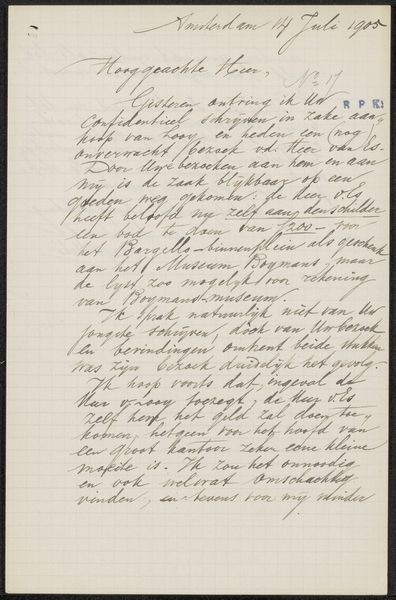 Amsterdam 14 Juli 1905
Hooggeachte Heer,
No 17
R P K.
Gisteren ontving ik Uw
confidentieel schrijven in zake aan-
koop van Looy en heden een (nog
onverwacht) bezoek v.d. Heer van Es.
Door Uwe bezoeken aan hem en aan
mij is de zaak blijkbaar op een
goeden weg gekomen: de heer v. Es
heeft beloofd nu zelf aan den schilder
een bod te doen van ƒ200.- voor
het Bargello-binnenplein als geschenk
aan het Museum Boymans, maar
de lijst zoo mogelijk voor rekening
van Boymans-museum.
Ik sprak natuurlijk niet van Uw
jongste schrijven, doch van Uw bezoek
en bevindingen omtrent beide stukken
was zijn bezoek duidelijk het gevolg.
Ik hoop voorts dat, ingeval de
Heer v. Looy toezegt, de Heer v. Es
zelf hem het geld zal doen toe-
komen, hetgeen voor het hoofd van
een groot kantoor zeker eene kleine
moeite is. Ik zou het onnoodig
en ook welwat omslachtig
vinden, en tevens voor mij minder